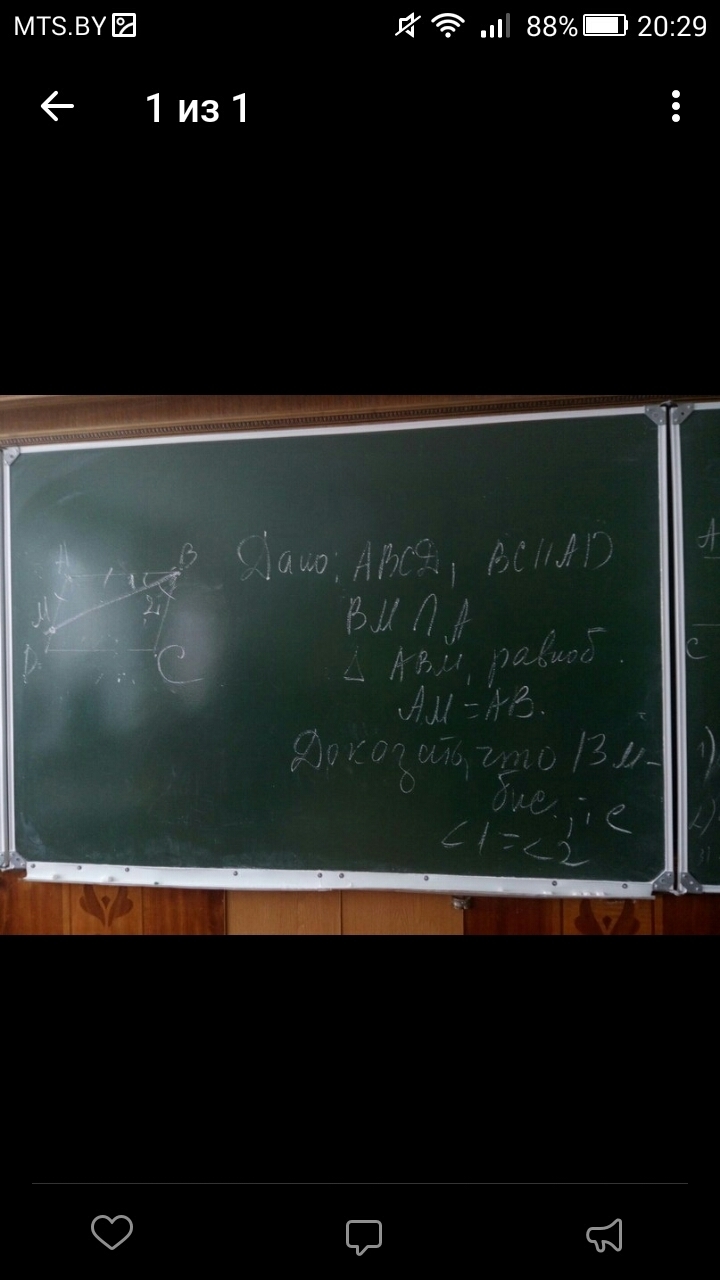 MTS.BY 88% 20:29
1 из 1
A B
1
2
M
D C
Дано: ABCD, BC||AD
BM ∩ A
Δ ABM, равноб.
AM = AB.
Доказать, что BM-
бис., т.е
<1=<2
A
C
1)
2)